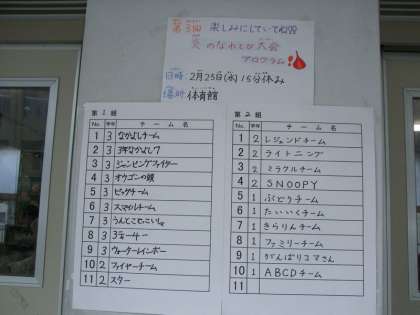 第3回 楽しみにしていてね!!
炎のなわとび大会
プログラム
日時 2月25日(水) 15分休み
場所 体育館
第1組
No. 学年 チーム名
1 3 なかよしチーム
2 3 3年なかよし7
3 3 ジャンピングファイター
4 3 オウゴンの鏡
5 3 ビッグチーム
6 3 スマイルチーム
7 3 うんとこどっこい!!
8 3
9 3 ウォーターレインボー
10 2 ファイヤーチーム
11 2 スター
第2組
No. 学年 チーム名
1 2 レジェンドチーム
2 2 ライトニング
3 2 ミラクルチーム
4 2 SNOOPY
5 1 ぶどうチーム
6 1 たいいくチーム
7 1 きらりんチーム
8 1 ファミリーチーム
9 1 がんばりコマさん
10 1 ABCDチーム
11